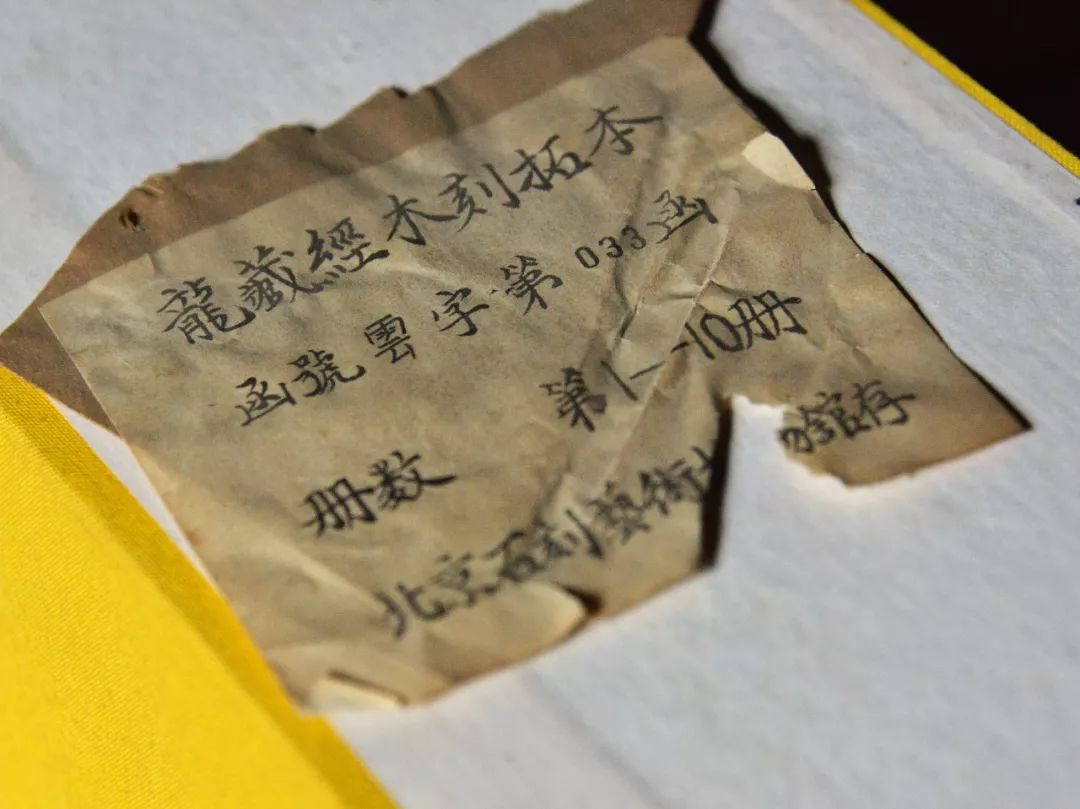 龍藏經木刻拓本
函號雲字第033函
册数 第1—10册
北京石刻藝術 館存